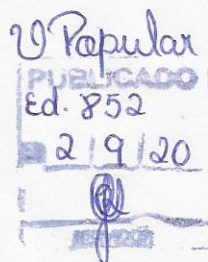 V Popular
PUBLICADO
Ed. 852
2/9/20